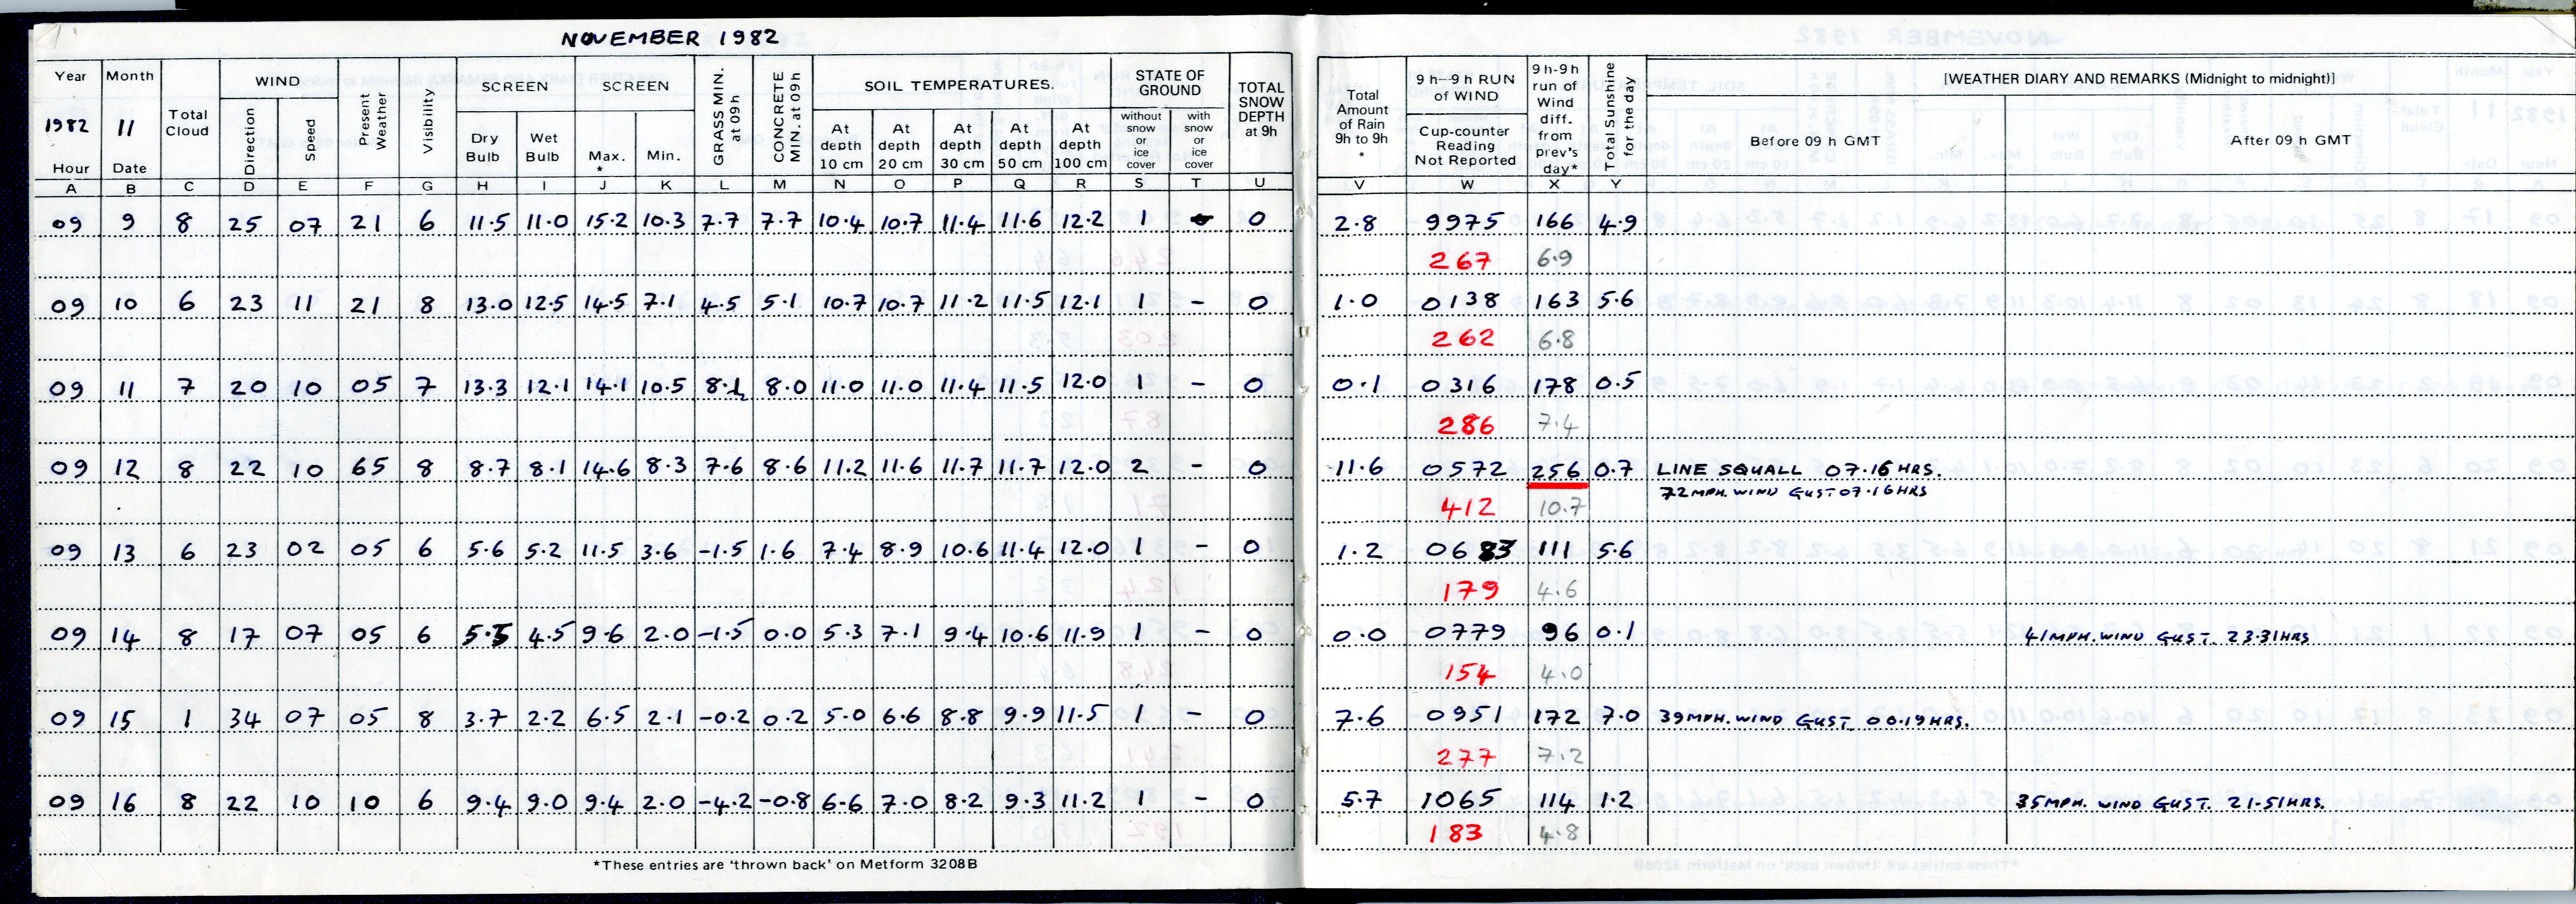 NOVEMBER 1982
Year Month Total Cloud WIND Present Weather Visibility SCREEN SCREEN GRASS MIN. at 09h CONCRETE MIN. at 09h SOIL TEMPERATURES. STATE OF GROUND TOTAL SNOW DEPTH at 9h Total Amount of Rain 9h to 9h * 9h--9h RUN of WIND 9h-9h run of Wind diff. from prev's day* Total Sunshine for the day [WEATHER DIARY AND REMARKS (Midnight to midnight)]
1982 11 Direction Speed Dry Bulb Wet Bulb Max. * Min. At depth 10 cm At depth 20 cm At depth 30 cm At depth 50 cm At depth 100 cm without snow or ice cover with snow or ice cover Cup-counter Reading Not Reported Before 09 h GMT After 09 h GMT
Hour Date
A B C D E F G H I J K L M N O P Q R S T U V W X Y
09 9 8 25 07 21 6 11.5 11.0 15.2 10.3 7.7 7.7 10.4 10.7 11.4 11.6 12.2 1 0 2.8 9975 166 4.9
267 6.9
09 10 6 23 11 21 8 13.0 12.5 14.5 7.1 4.5 5.1 10.7 10.7 11.2 11.5 12.1 1 - 0 1.0 0138 163 5.6
262 6.8
09 11 7 20 10 05 7 13.3 12.1 14.1 10.5 8.1 8.0 11.0 11.0 11.4 11.5 12.0 1 - 0 0.1 0316 178 0.5
286 7.4
09 12 8 22 10 65 8 8.7 8.1 14.6 8.3 7.6 8.6 11.2 11.6 11.7 11.7 12.0 2 - 0 11.6 0572 256 0.7 LINE SQUALL 07.16 HRS.
72 MPH. WIND GUST 07.16 HRS
412 10.7
09 13 6 23 02 05 6 5.6 5.2 11.5 3.6 -1.5 1.6 7.4 8.9 10.6 11.4 12.0 1 - 0 1.2 0683 111 5.6
179 4.6
09 14 8 17 07 05 6 5.5 4.5 9.6 2.0 -1.5 0.0 5.3 7.1 9.4 10.6 11.9 1 - 0 0.0 0779 96 0.1 41 MPH. WIND GUST. 23.31 HRS
154 4.0
09 15 1 34 07 05 8 3.7 2.2 6.5 2.1 -0.2 0.2 5.0 6.6 8.8 9.9 11.5 1 - 0 7.6 0951 172 7.0 39 MPH. WIND GUST. 00.19 HRS.
277 7.2
09 16 8 22 10 10 6 9.4 9.0 9.4 2.0 -4.2 -0.8 6.6 7.0 8.2 9.3 11.2 1 - 0 5.7 1065 114 1.2 35 MPH. WIND GUST. 21.51 HRS.
183 4.8
*These entries are 'thrown back' on Metform 3208B